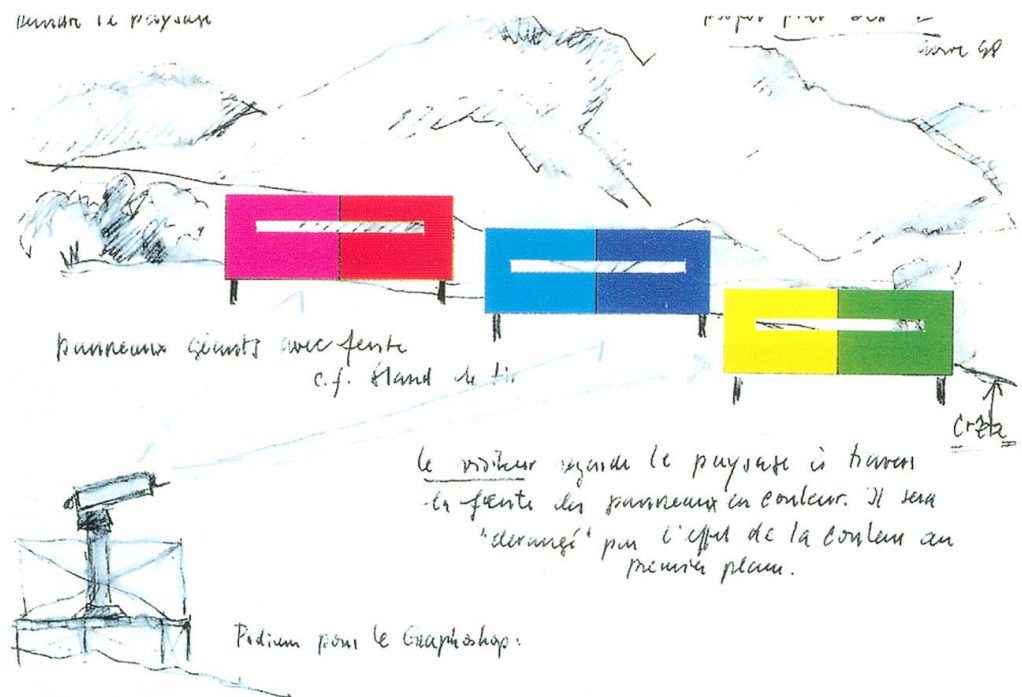 le paysage
panneaux géants avec fente
c.f. Stand de tir
le visiteur regarde le paysage à travers
la fente des panneaux en couleur. Il sera
"derangé" par l'effet de la couleur au
premier plan.
Podium pour le Graphoshop: